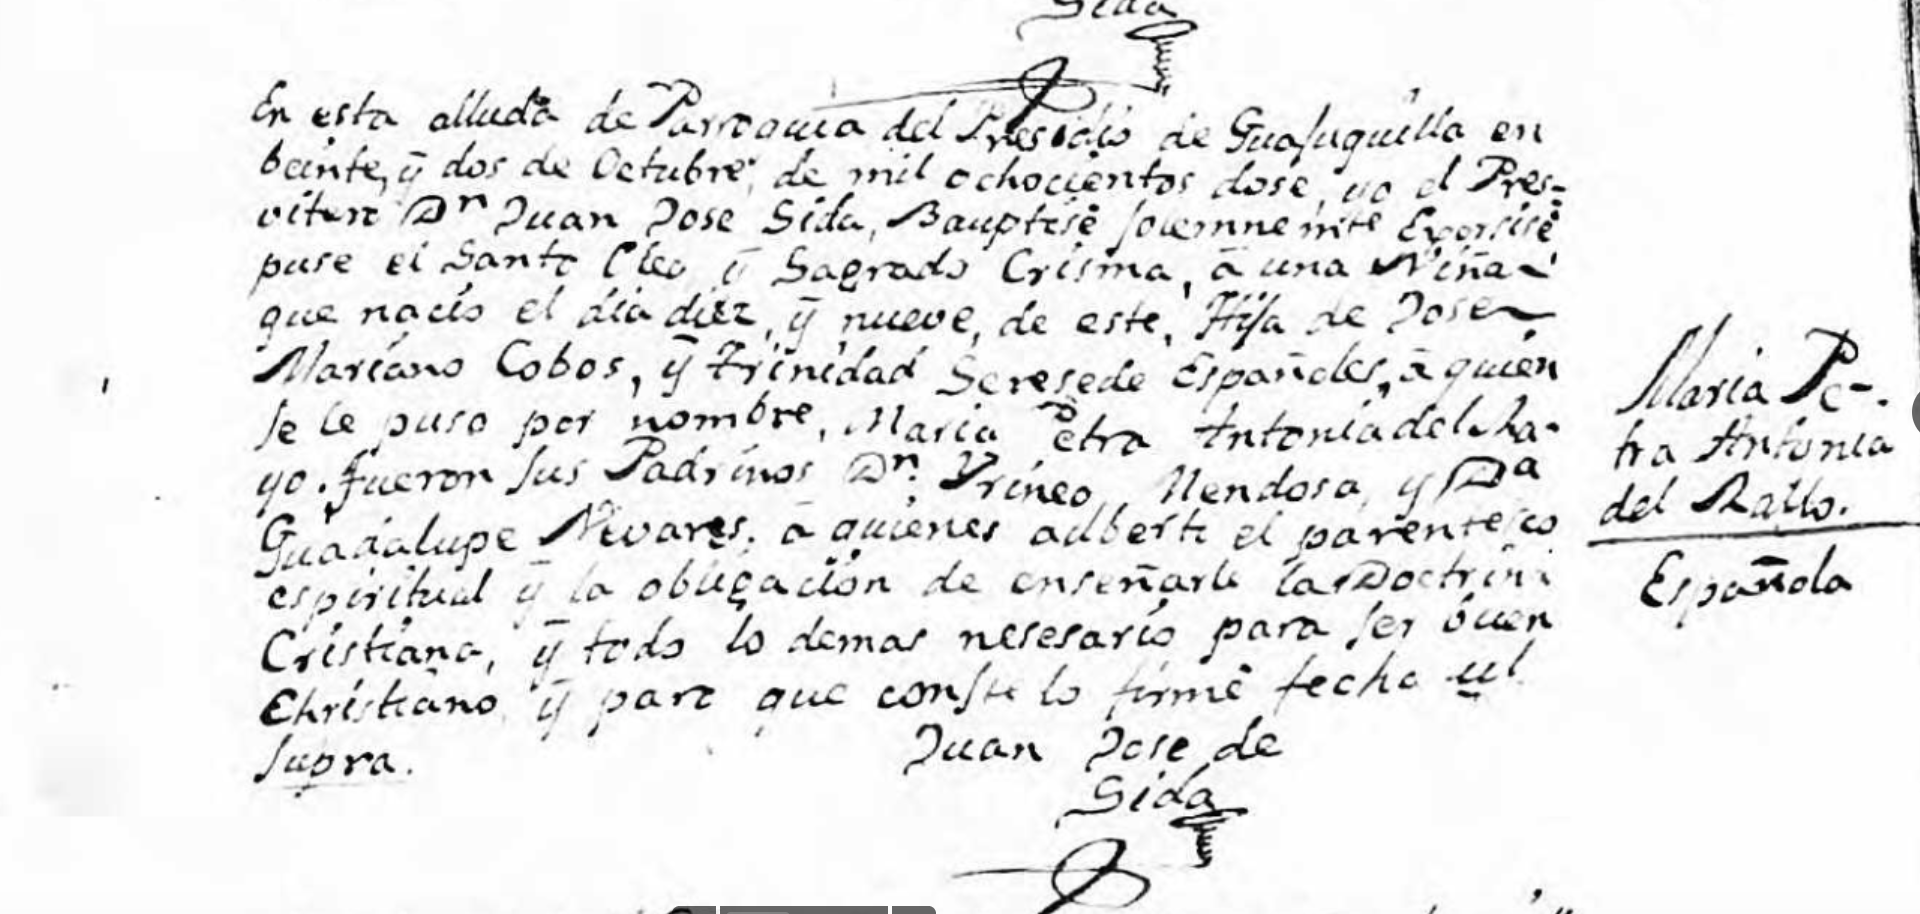 Sida
En esta alluda de Parroquia del Presidio de Guajuquilla en
beinte, ÿ dos de Octubre, de mil ochocientos dose, yo el Pres-
vitero Dn Juan Jose Sida, Bauptisé solemnemte Exorsisé
puse el Santo Oleo ÿ Sagrado Crisma, â una Niña
que nacio el dia diez, ÿ nueve, de este, Hija de Jose
Mariano Cobos, ÿ Trinidad Seresede Españoles, â quien
se le puso por nombre, Maria Petra Antonia del Ra-
yo. fueron sus Padrinos Dn. Yrineo Mendosa, y Da
Guadalupe Nevares, â quienes adberti el parentesco
espiritual ÿ la obligacion de enseñarle la Doctrina
Cristiana, ÿ todo lo demas nesesario para ser buen
Christiano, ÿ para que conste lo firmé fecha ut
supra.
Juan Jose de
Sida
Maria Pe-
tra Antonia
del Rallo.
Española